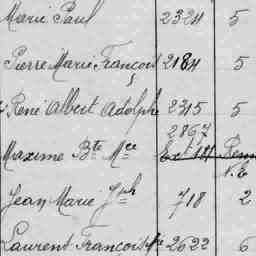 Marie Paul 2324 5
Pierre Marie François 2184 5
René Albert Adolphe 2315 5
2867
Maxime Bte Mce Ext 141
N.E
Jean Marie Jph 718 2
Laurent François Mie 2622 6